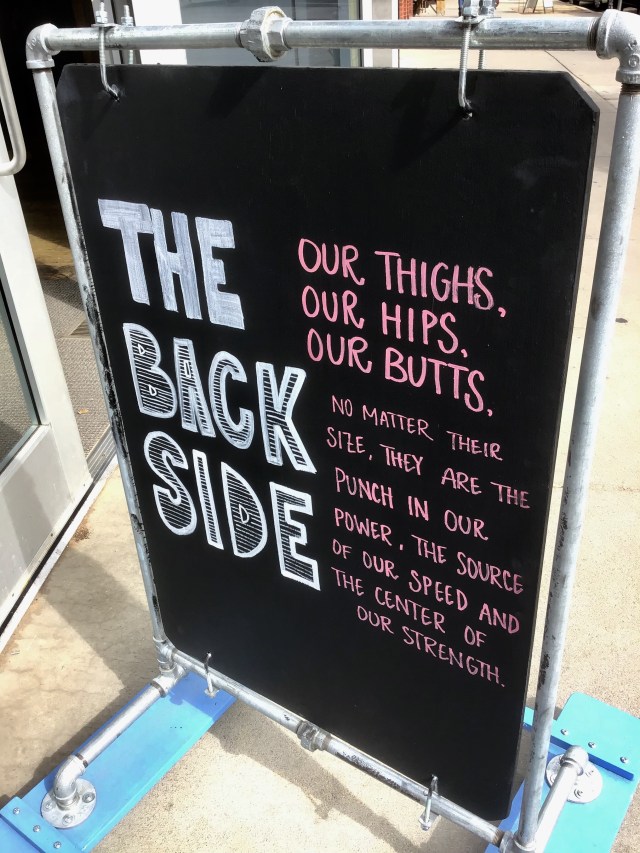 THE
BACK
SIDE
OUR THIGHS,
OUR HIPS,
OUR BUTTS,
NO MATTER THEIR
SIZE, THEY ARE THE
PUNCH IN OUR
POWER, THE SOURCE
OF OUR SPEED AND
THE CENTER OF
OUR STRENGTH.